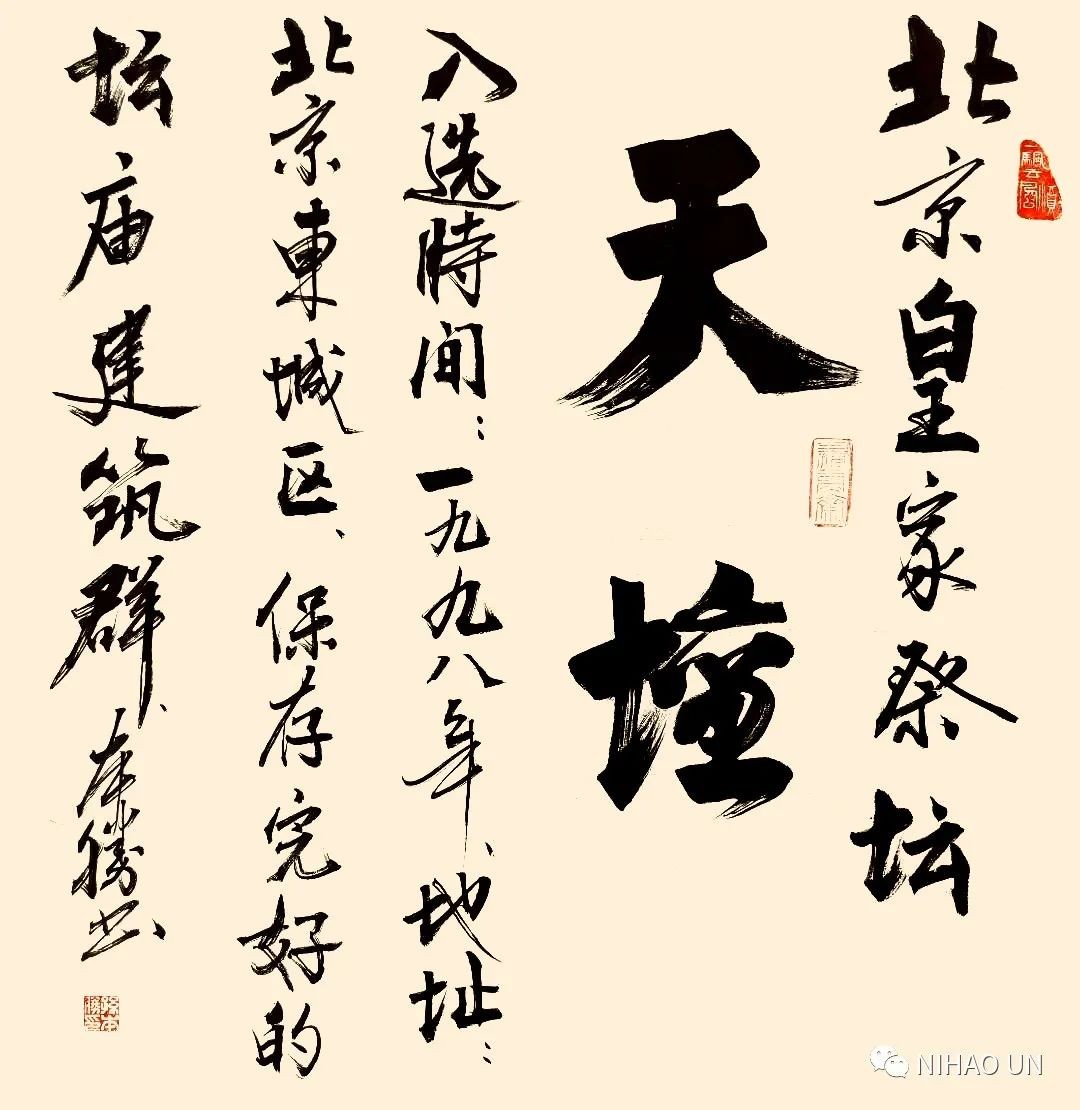 北京皇家祭坛
天壇
入选時间：一九九八年、地址：
北京東城区、保存完好的
坛庙建筑群、本勝书、
NIHAO UN